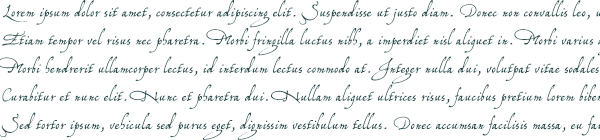 Lorem ipsum dolor sit amet, consectetur adipiscing elit. Suspendisse ut justo diam. Donec non convallis leo, u
Etiam tempor vel risus nec pharetra. Morbi fringilla luctus nibh, a imperdiet nisl aliquet in. Morbi varius
Morbi hendrerit ullamcorper lectus, id interdum lectus commodo at. Integer nulla dui, volutpat vitae sodales
Curabitur et nunc elit. Nunc et pharetra dui. Nullam aliquet ultrices risus, faucibus pretium lorem biben
Sed tortor ipsum, vehicula sed purus eget, dignissim vestibulum tellus. Donec accumsan facilisis massa, eu fa